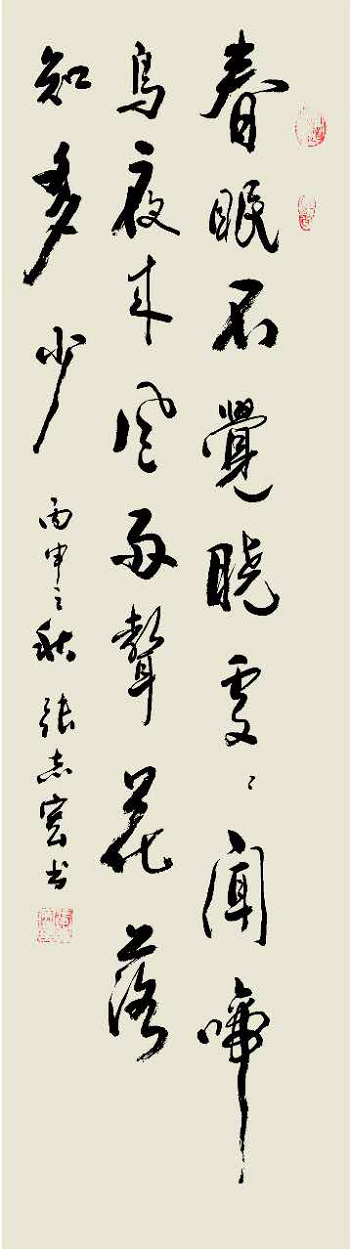 春眠不覺晓處々聞啼
鳥夜来風雨聲花落
知多少
丙申之秋张志宏书